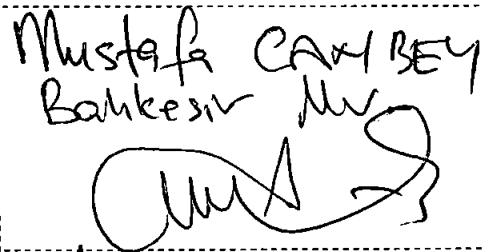 Mustafa CANBEY
Balıkesir Mv.